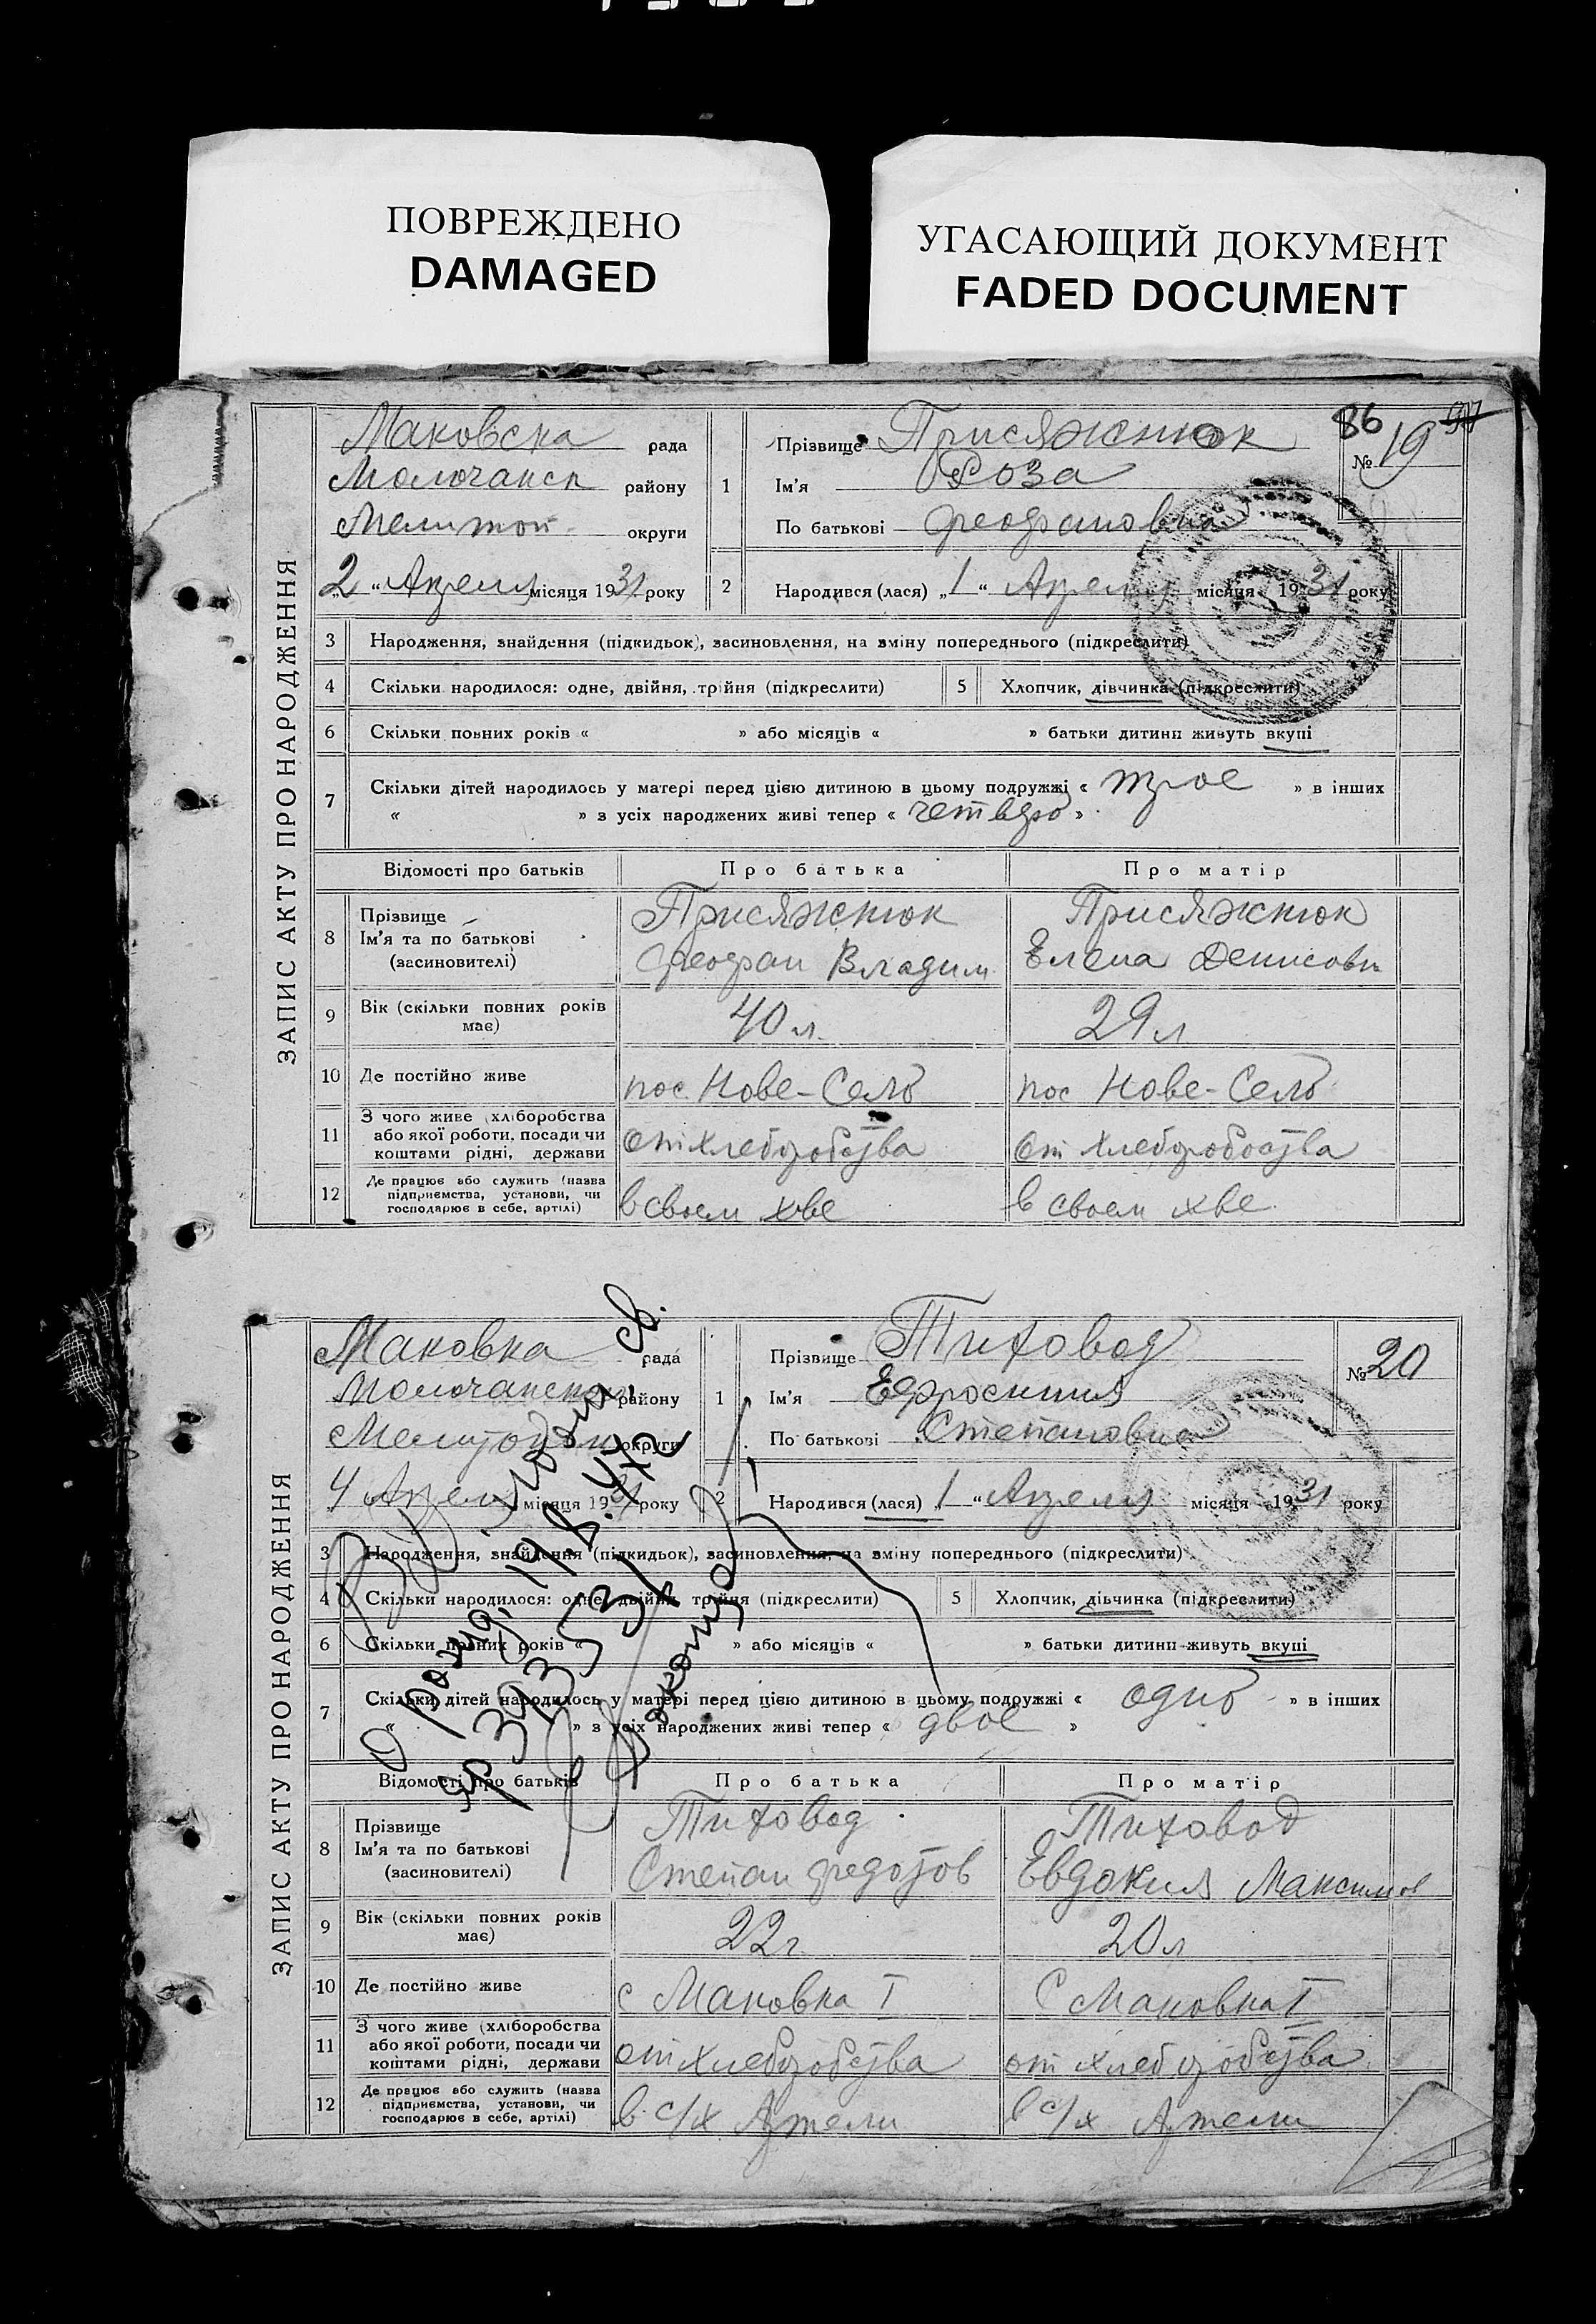 ПОВРЕЖДЕНО
DAMAGED
УГАСАЮЩИЙ ДОКУМЕНТ
FADED DOCUMENT
86 97
ЗАПИС АКТУ ПРО НАРОДЖЕННЯ
Маковска рада
Молочанск району
Мелитоп округи
„2 “ Апреля місяця 1931 року
1 Прізвище Присяжнюк
Ім'я Роза
По батькові Феофановна
№ 19
2 Народився (лася) „1 “ Апреля місяця 1931 року
3 Народження, знайдення (підкидьок), засиновлення, на зміну попереднього (підкреслити)
4 Скільки народилося: одне, двійня, трійня (підкреслити) 5 Хлопчик, дівчинка (підкреслити)
6 Скільки повних років « » або місяців « » батьки дитини живуть вкупі
7 Скільки дітей народилось у матері перед цією дитиною в цьому подружжі « трое » в інших
« » з усіх народжених живі тепер « четверо »
Відомості про батьків Про батька Про матір
8 Прізвище Присяжнюк Присяжнюк
Ім'я та по батькові Феофан Владим Елена Денисовн
(засиновителі)
9 Вік (скільки повних років має) 40 л. 29 л
10 Де постійно живе пос. Нове-Село пос Нове-Село
11 З чого живе (хліборобства
або якої роботи, посади чи
коштами рідні, держави от хлеборобства от хлеборобства
12 Де працює або служить (назва
підприємства, установи, чи
господарює в себе, артілі) в своем хве в своем хве
ЗАПИС АКТУ ПРО НАРОДЖЕННЯ
Маковка рада
Молочанско району
округи
4 Апреля місяця 1931 року
1 Прізвище Тиховод
Ім'я Ефросиния
По батькові Степановна
№ 20
2 Народився (лася) 1 “ Апреля місяця 1931 року
3 Народження, знайдення (підкидьок), засиновлення, на зміну попереднього (підкреслити)
4 Скільки народилося: одне, двійня, трійня (підкреслити) 5 Хлопчик, дівчинка (підкреслити)
6 Скільки повних років « » або місяців « » батьки дитини живуть вкупі
7 Скільки дітей народилось у матері перед цією дитиною в цьому подружжі « одно » в інших
« » з усіх народжених живі тепер « двое »
Відомості про батьків Про батька Про матір
8 Прізвище Тиховод Тиховод
Ім'я та по батькові Степан Федотов Евдокия Максимов
(засиновителі)
9 Вік (скільки повних років має) 22 г. 20 л
10 Де постійно живе с Маковка I С Маковка I
11 З чого живе (хліборобства
або якої роботи, посади чи
коштами рідні, держави от хлеборобства от хлеборобства
12 Де працює або служить (назва
підприємства, установи, чи
господарює в себе, артілі) в с/х Артели в с/х Артели